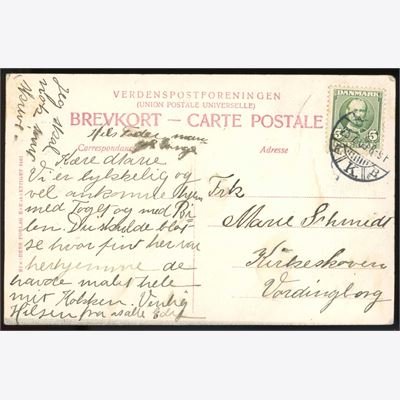 VERDENSPOSTFORENINGEN
(UNION POSTALE UNIVERSELLE)
BREVKORT – CARTE POSTALE
Correspondance
Adresse
DANMARK
5 5
Jeg skal
nok
Kære Marie
Vi er lykkelig og
vel ankomne hjem
med Toget og med Bi
len. Du skulde blot
se hvor fint her var
herhjemme de
havde malet hele
mit Køkken. Venlig
Hilsen fra alle
Frk
Marie Schmidt
Kirkeskoven
Vordingborg